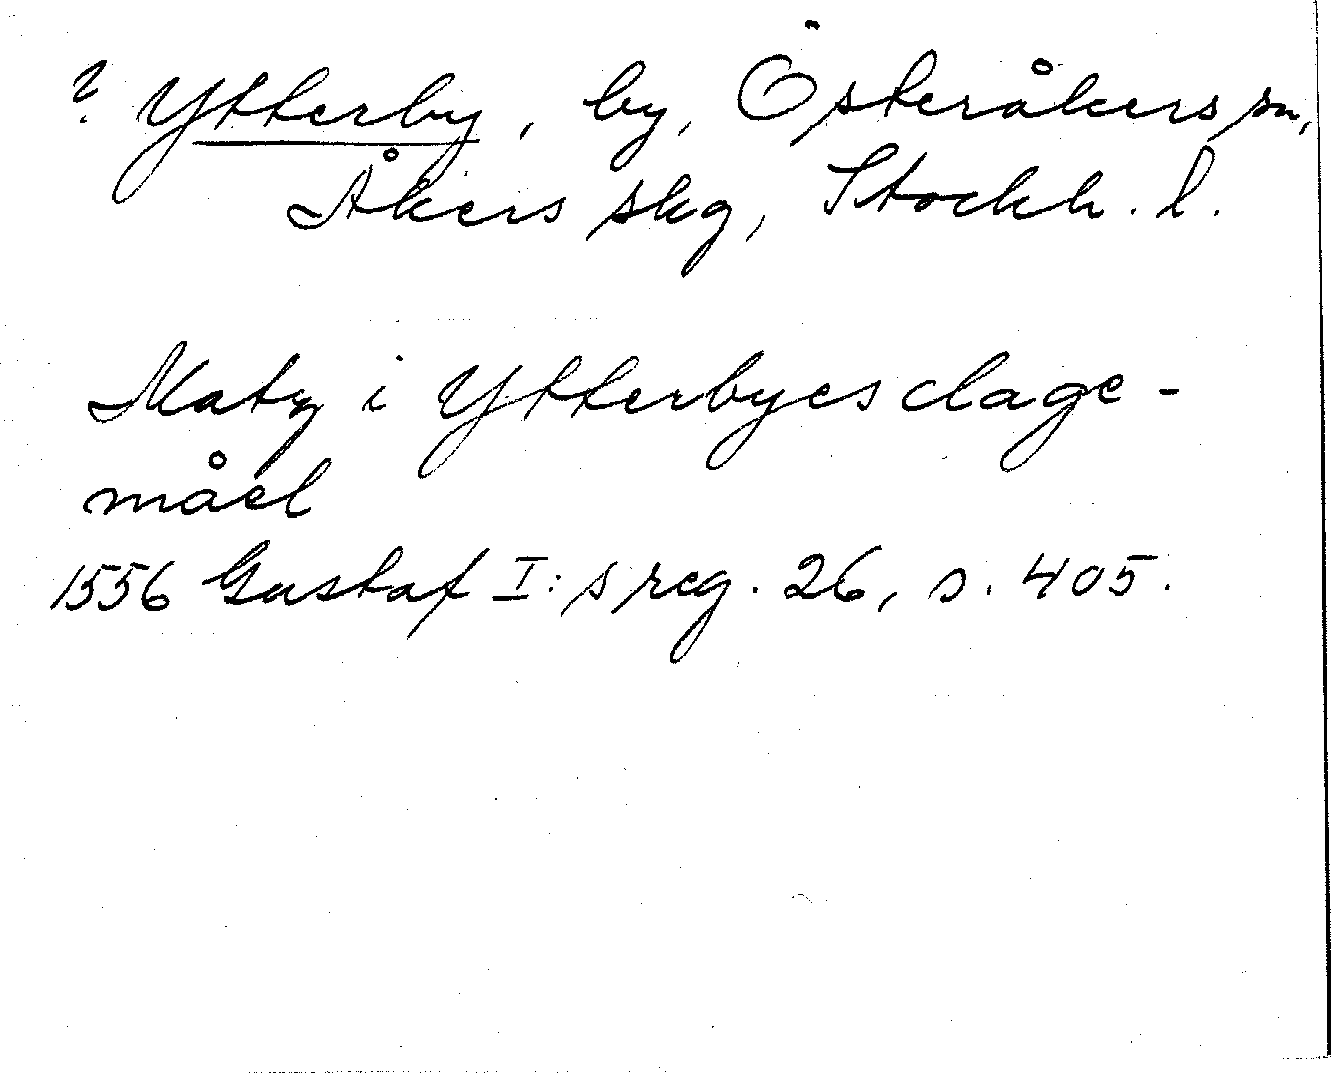 ? Ytterby, by, Österåkers sn,
Åkers skg, Stockh. l.
Matz i Ytterbyes dage-
måel
1556 Gustaf I:s reg. 26, s. 405.